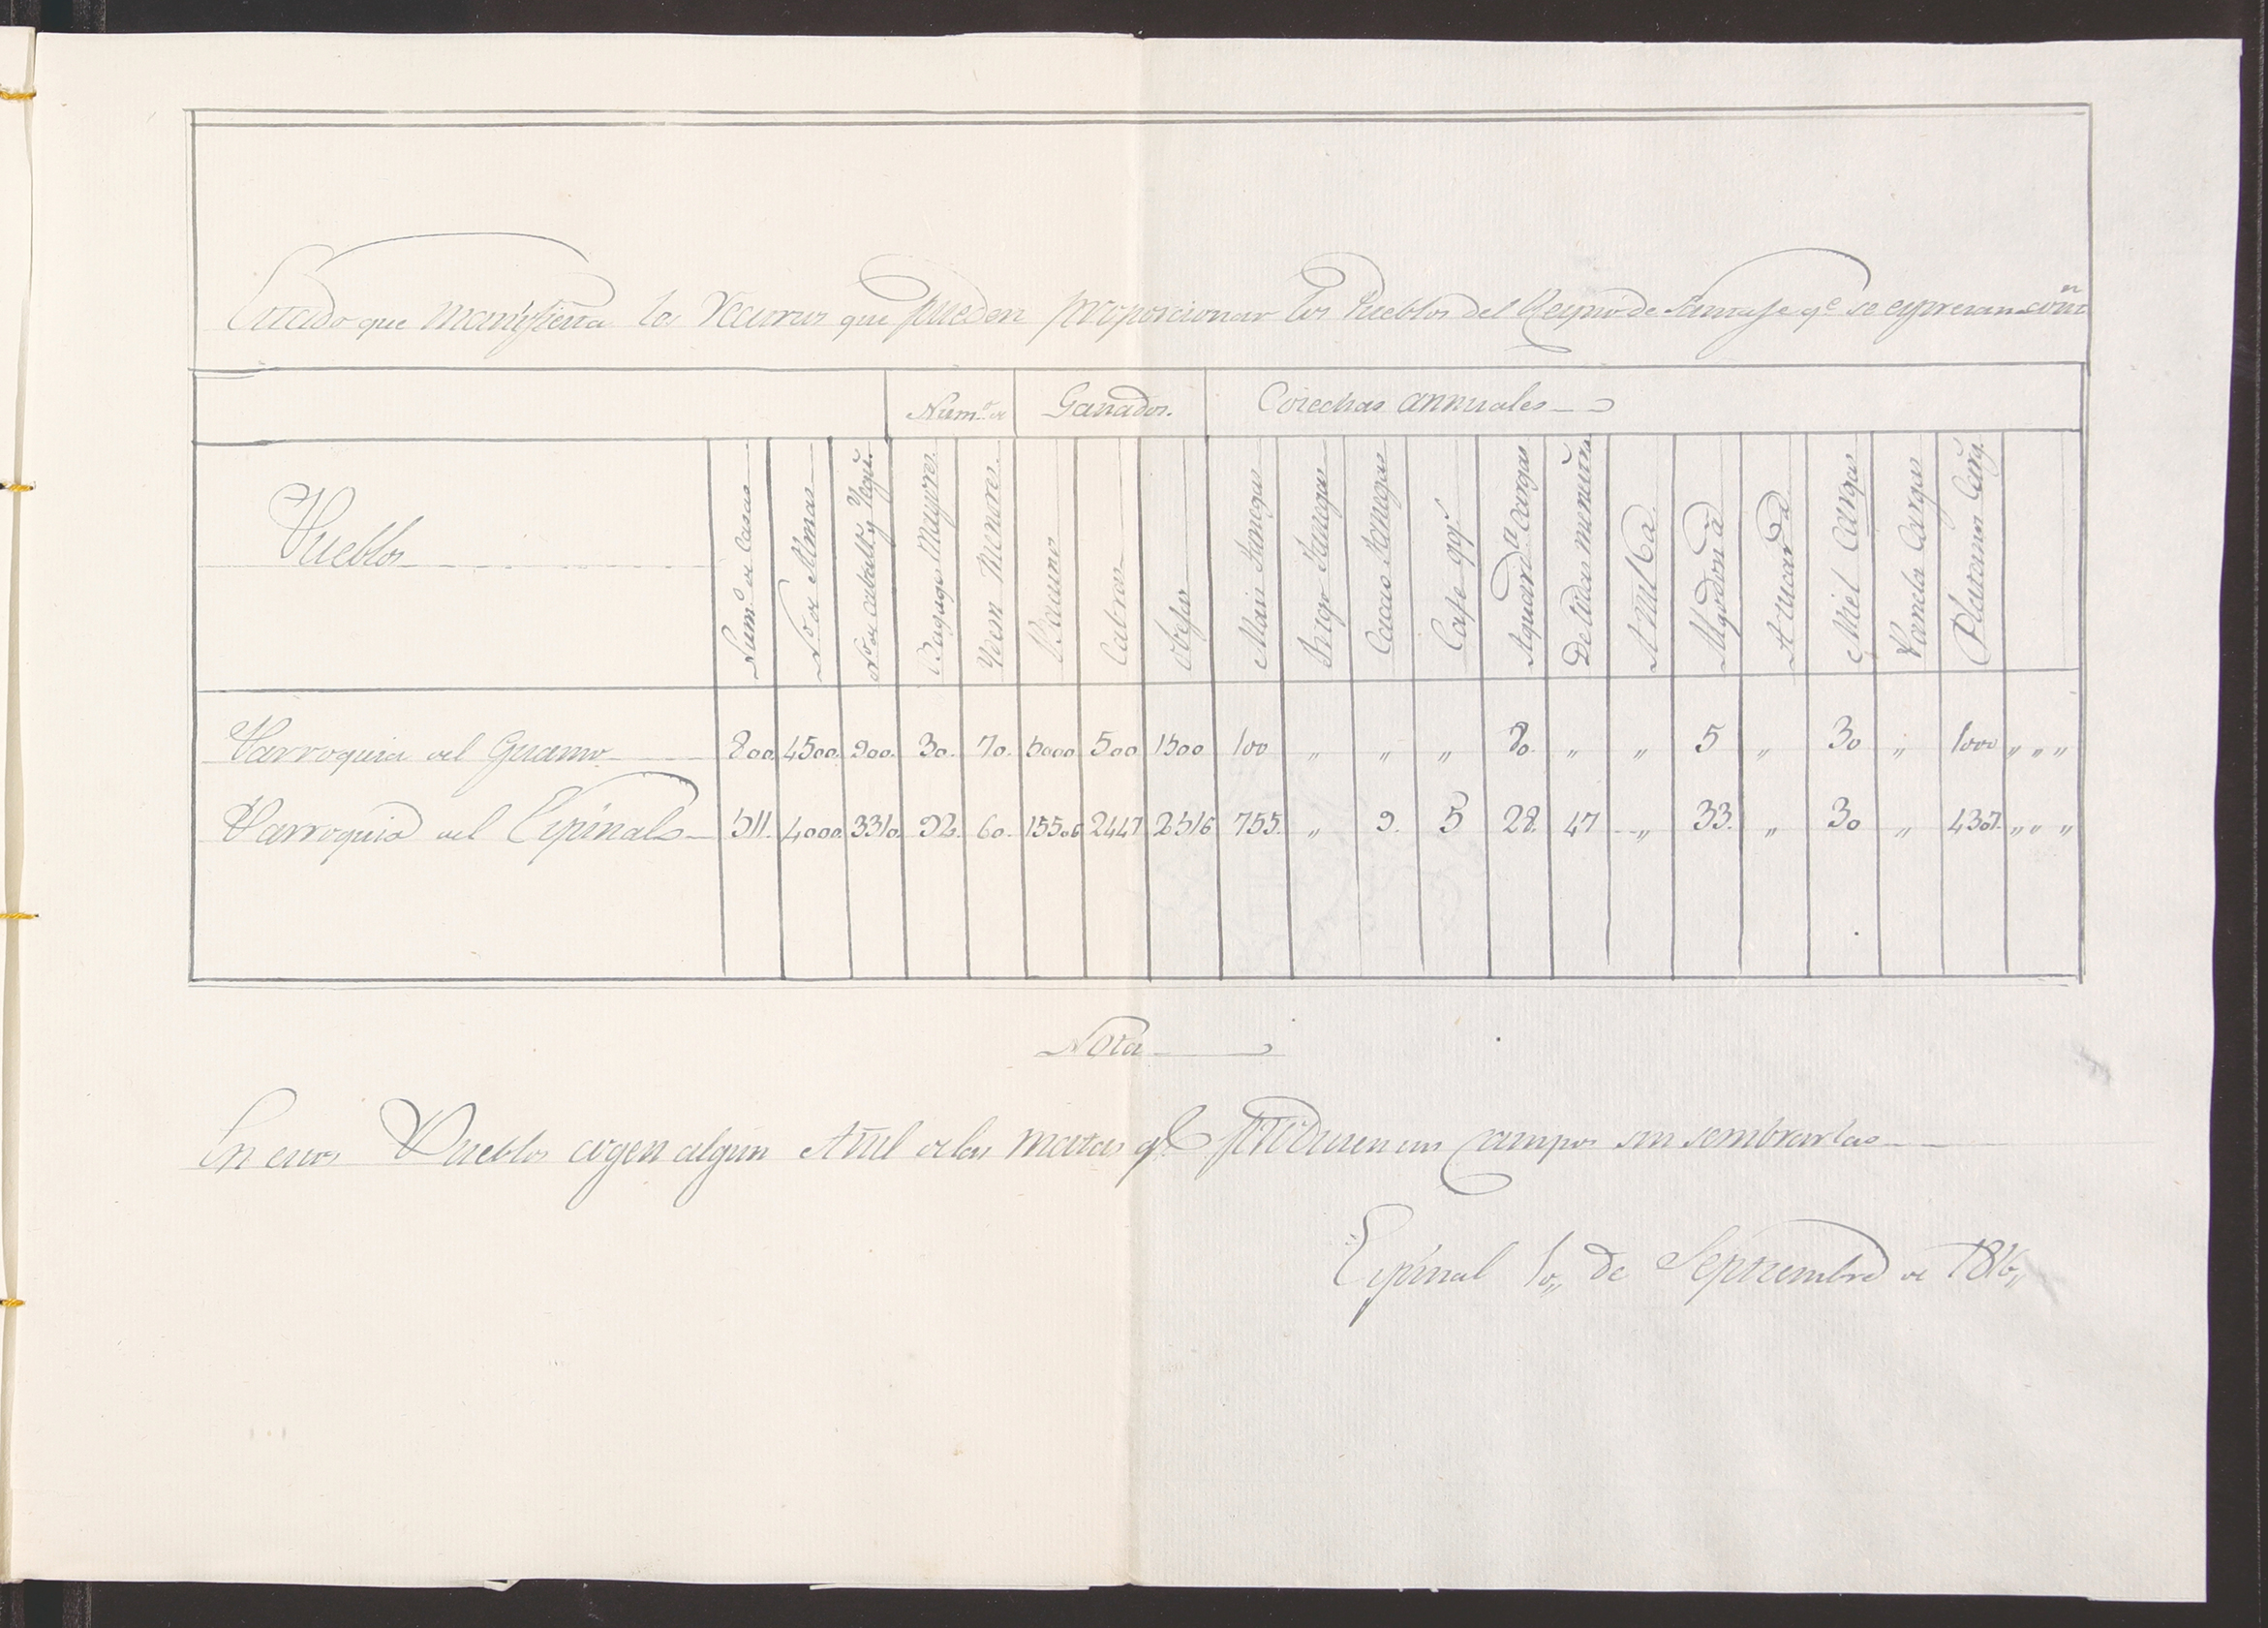 Estado que manifiesta los Recursos que pueden proporcionar los Pueblos del Reyno de Santafe qe. se expresan
Num.o de Ganados. Cosechas annuales
Pueblos
Num.o de Casas
N.o de Almas
N.o de caballos y Yegu.s
Bagages Mayores.
Ydem Menores.
Bacuno
Cabrio
Obejas
Mais fanegas
Trigo fanegas
Cacao fanegas
Cafe qq.s
Aguard.te cargas
De tidas menestra
Añil @
Algodon @
Azucar @
Miel Cargas
Panela Cargas
Platanos Carg.s
Parroquia del Guamo 800. 4500. 900. 30. 70. 6000 500 1500 100 " " " 80. " " 5 " 30 " 1000 " " "
Parroquia del Espinal 511. 4000. 3310. 92. 60. 15506 2447 2516 755. " 9. 5 28. 47 " 33. " 30 " 4307. " " "
Nota
En esos Pueblos cogen algun Añil de las matas qe. producen sus campos sin sembrarlas
Espinal 10,, de Septiembre de 1816,,